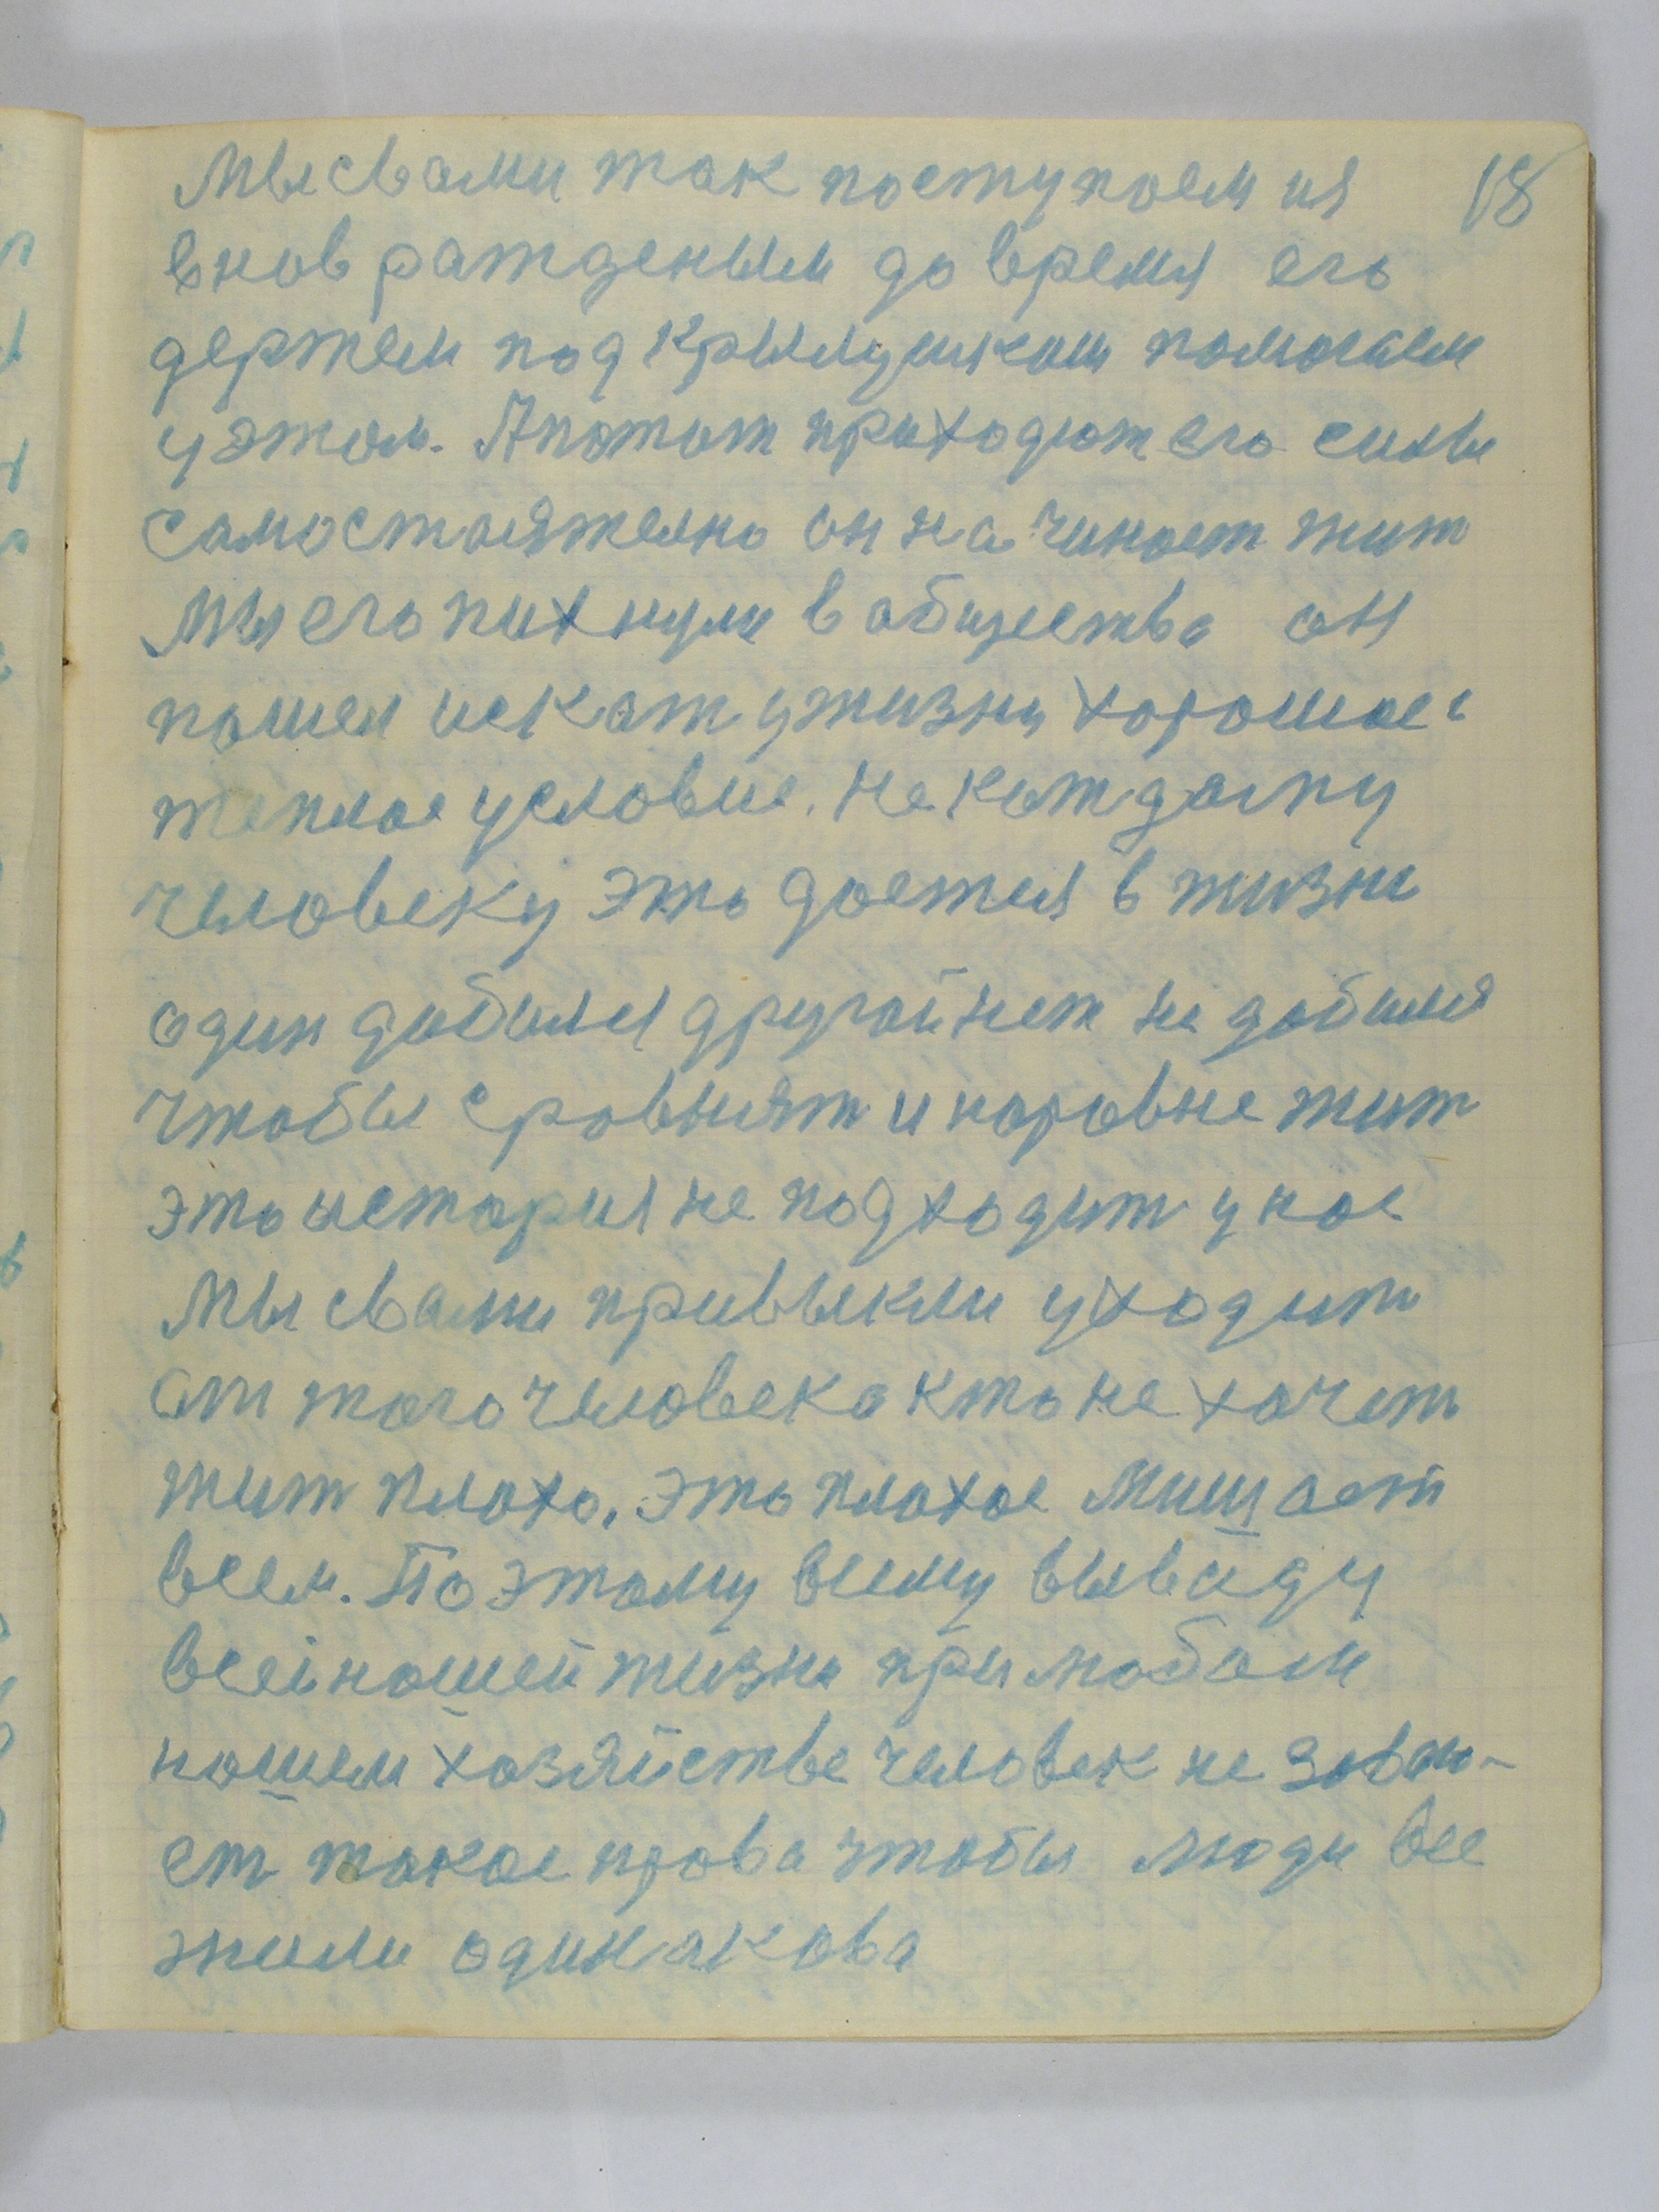 18
Мы свами так поступаем ия
внов ратжденым до время его
держем под крылушкам памагаем
у этом. А патом приходют его силы
самостоятелно он на чинает жит
Мы его пихнули в общества он
пашел искат ужизни хорошае
теплае условие. Не каждаму
человеку это дается в жизни
один дабился другой нет не дабился
чтобы сровнят и наровне жит
это история не подходит у нас
Мы свами привыкли уходит
от того человека кто не хочет
жит плохо. Это плохое мишает
всем. По этому всему вываду
всей нашей жизни при любом
нашем хозяйстве человек не заваю-
ет такое права чтобы люди все
жили одинакова